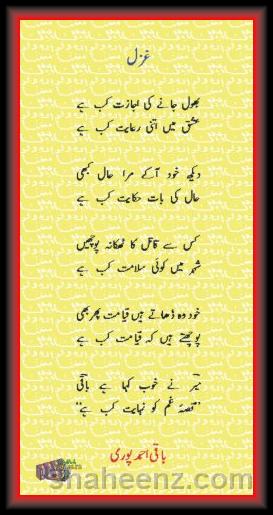 غزل
بھول جانے کی اجازت کب ہے
عشق میں اتنی رعایت کب ہے
دیکھ خود آ کے مرا حال کبھی
حال کی بات حکایت کب ہے
کس سے قاتل کا ٹھکانہ پوچھیں
شہر میں کوئی سلامت کب ہے
خود وہ ڈھاتے ہیں قیامت پھر بھی
پوچھتے ہیں کہ قیامت کب ہے
میرؔ نے خوب کہا ہے باقیؔ
"قصۂ غم کو نہایت کب ہے"
باقی احمد پوری
shaheenz.com